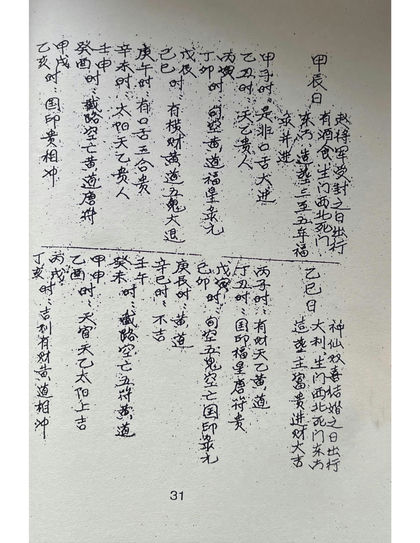 甲辰日
赵将军受封之日出行
有酒食生门西北死门
东方 造葬三至五年福
禄并进
甲子时：是非口舌大进
乙丑时：天乙贵人
丙寅
丁卯时：旬空黄道福星柴元
戊辰时：有横财黄道五鬼大退
己巳
庚午时：有口舌三合贵
辛未时：太阳天乙贵人
壬申
癸酉时：截路空亡黄道唐符
甲戌
乙亥时：国印贵相冲
乙巳日
神仙双喜结婚之日出行
大利生门西北死门东方
造葬主富贵进财大吉
丙子时：有财天乙黄道
丁丑时：国印福星唐符贵
戊寅
己卯时：旬空五鬼空亡国印柴元
庚辰时：黄道
辛巳时：不吉
壬午
癸未时：截路空亡五符黄道
甲申
乙酉时：天官天乙太阳上吉
丙戌
丁亥时：吉利有财黄道相冲
31